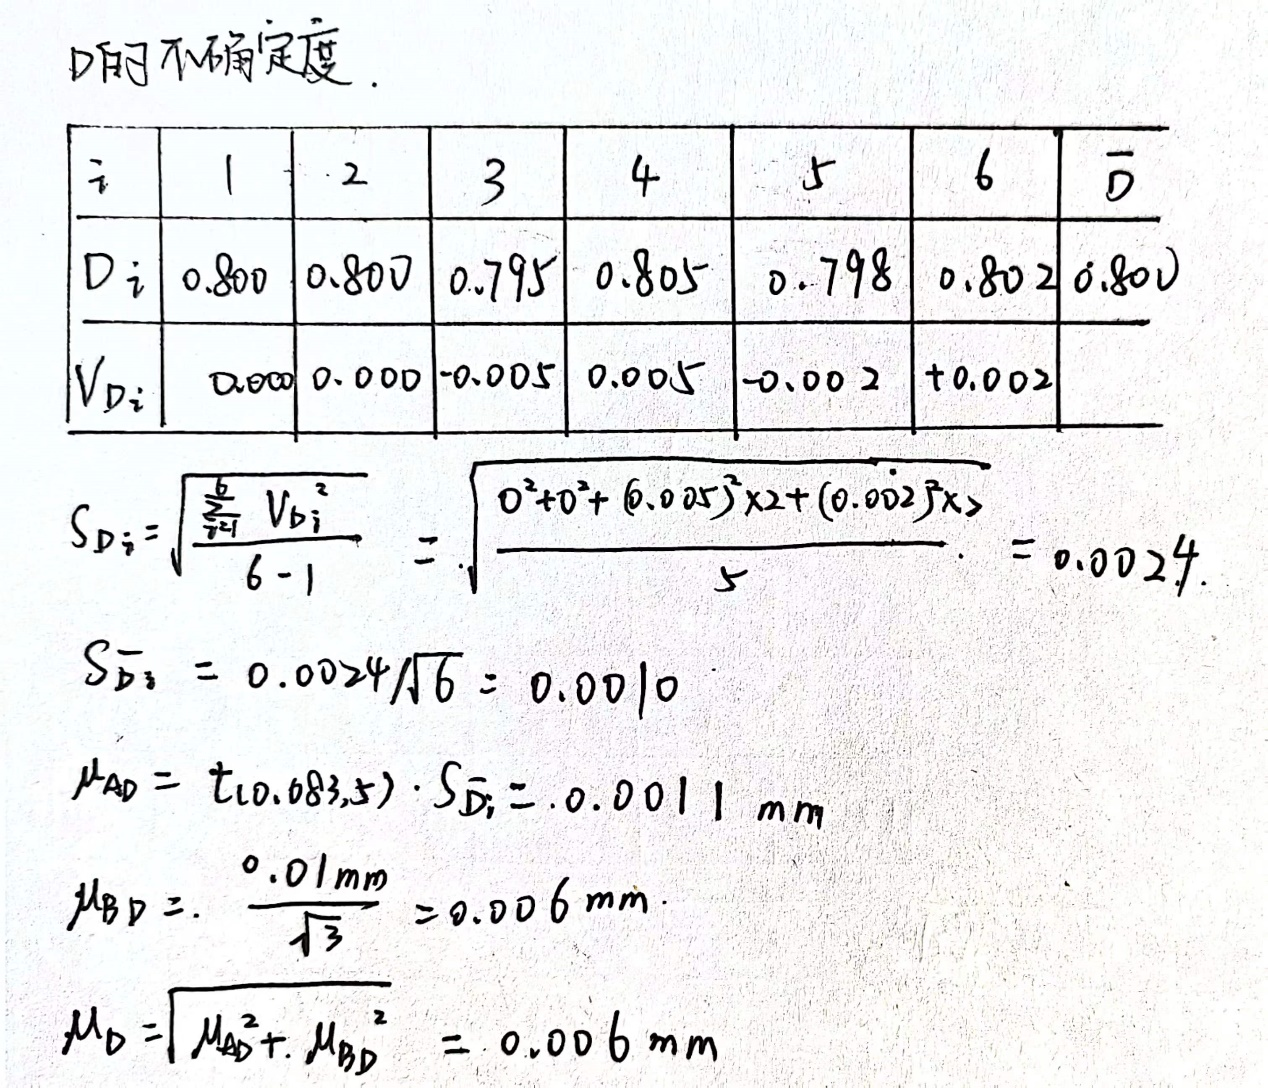 D的不确定度.
i 1 2 3 4 5 6 D̄
Di 0.800 0.800 0.795 0.805 0.798 0.802 0.800
VDi 0.000 0.000 -0.005 0.005 -0.002 +0.002
SDi = √(∑_{i=1}^{6} VDi² / (6-1)) = √((0²+0²+(0.005)²×2+(0.002)²×2) / 5) = 0.0024.
SD̄i = 0.0024/√6 = 0.0010
μAD = t(0.683,5)·SD̄i = 0.0011 mm
μBD = 0.01mm/√3 = 0.006 mm.
μD = √(μAD² + μBD²) = 0.006 mm